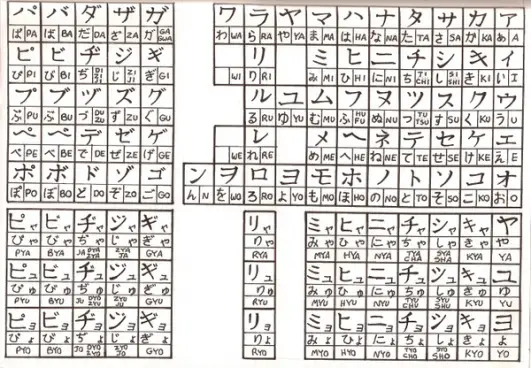 パ バ ダ ザ ガ ワ ラ ヤ マ ハ ナ タ サ カ ア
ぱ PA ば BA だ DA ざ ZA が GA わ WA ら RA や YA ま MA は HA な NA た TA さ SA か KA あ A
ピ ビ ヂ ジ ギ リ ミ ヒ ニ チ シ キ イ
ぴ PI び BI ぢ じ ZI JI ぎ GI WI り RI み MI ひ HI に NI ち TI CHI し SI SHI き KI い I
プ ブ ヅ ズ グ ル ユ ム フ ヌ ツ ス ク ウ
ぷ PU ぶ BU づ DU ZU ず ZU ぐ GU る RU ゆ YU む MU ふ HU FU ぬ NU つ TU TSU す SU く KU う U
ペ ベ デ ゼ ゲ レ メ ヘ ネ テ セ ケ エ
ぺ PE べ BE で DE ぜ ZE げ GE WE れ RE め ME へ HE ね NE て TE せ SE け KE え E
ポ ボ ド ゾ ゴ ン ヲ ロ ヨ モ ホ ノ ト ソ コ オ
ぽ PO ぼ BO ど DO ぞ ZO ご GO ん N を WO ろ RO よ YO も MO ほ HO の NO と TO そ SO こ KO お O
ピャ ビャ ヂャ ジャ ギャ リャ ミャ ヒャ ニャ チャ シャ キャ ヤ
ぴゃ びゃ ぢゃ じゃ ぎゃ りゃ みゃ ひゃ にゃ ちゃ しゃ きゃ や
PYA BYA JA DYA ZYA ZYA JA GYA RYA MYA HYA NYA TYA CHA SYA SHA KYA YA
ピュ ビュ ヂュ ジュ ギュ リュ ミュ ヒュ ニュ チュ シュ キュ ユ
ぴゅ びゅ ぢゅ じゅ ぎゅ りゅ みゅ ひゅ にゅ ちゅ しゅ きゅ ゆ
PYU BYU JU DYU ZYU ZYU JU GYU RYU MYU HYU NYU TYU CHU SYU SHU KYU YU
ピョ ビョ ヂョ ジョ ギョ リョ ミョ ヒョ ニョ チョ ショ キョ ヨ
ぴょ びょ ぢょ じょ ぎょ りょ みょ ひょ にょ ちょ しょ きょ よ
PYO BYO JO DYO ZYO ZYO JO GYO RYO MYO HYO NYO TYO CHO SYO SHO KYO YO